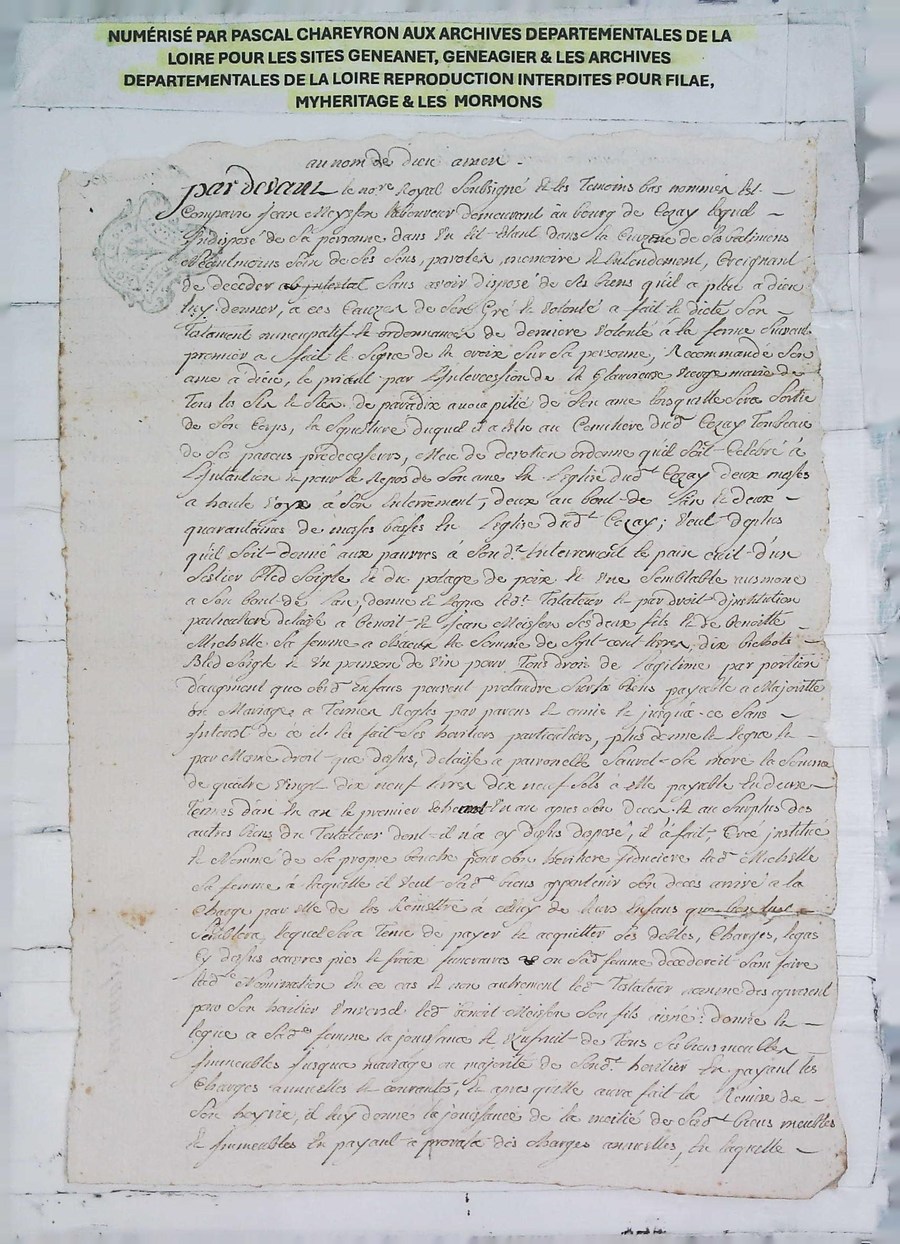 NUMÉRISÉ PAR PASCAL CHAREYRON AUX ARCHIVES DEPARTEMENTALES DE LA
LOIRE POUR LES SITES GENEANET, GENEAGIER & LES ARCHIVES
DEPARTEMENTALES DE LA LOIRE REPRODUCTION INTERDITES POUR FILAE,
MYHERITAGE & LES MORMONS
au nom de dieu amen
par devant le nore Royal Soubsigné & les Temoins bas nommés Est
Comparu Jean Meysson laboureur demeurant au bourg de Cezay lequel
Indisposé de Sa personne dans un lit Etant dans la Cuizine de Ses batimens
Neantmoins Sain de Ses Sens, parolles, memoire & Entendement, Craignant
de deceder ab intestat Sans avoir disposé de Ses biens qu'il a pleu à dieu
luy donner, a ces Causes de Son Gré & volonté a fait & dicté Son
Testament nuncupatif & ordonnance de derniere volonté à la forme Suivante
premier a fait le Signe de la croix Sur Sa personne, Recommandé Son
ame à dieu, le priant par L'Intercession de la Glorieuse vierge marie &
Tous les Sts & Stes de paradix avoir pitié de Son ame lorsquelle Sera Sortie
de Son Corps, la Sepulture duquel il a Eslu au Cimetiere dudt Cezay Tombeau
de Ses parens predecesseurs, Meu de devotion ordonne qu'il Soit Celebré à
L'Intention & pour le Repos de Son ame En L'eglise dudt Cezay deux messes
a haute voix à Son Enterrement, deux au bout de l'an & deux
quarantaines de messes basses En L'eglise dudt Cezay; veut de plus
qu'il Soit donné aux pauvres à Sondt Enterrement le pain cuit d'un
Sestier bled Soigle & du potage de poix & une Semblable aumone
a Son bout de l'an, donne & legue ledt Testateur & par droit d'institution
particuliere delaisse a benoit & Jean Meisson Ses deux fils & de benoitte
Michelle Sa femme a chacun la Somme de Sept cent livres, dix bichots
Bled Soigle & un poinson de vin pour Tous droits de legitime par portion
d'augment que Sesd Enfans peuvent pretendre Sur Ses biens payable a Majorité
ou Mariage a Termes Reglés par parens & amis & jusqu'à ce Sans
Interest & de ce il les fait Ses heritiers particuliers, plus donne & legue &
par Meme droit que dessus, delaisse a peironelle Sauvel Sa mere la Somme
de quatre vingt dix neuf livres dix neuf Sols à Elle payable En deux
Termes d'an En an le premier un an apres Son Deces & au Surplus des
autres biens du Testateur dont il n'a cy dessus disposé, il à fait Creé jnstitué
& Nommé de Sa propre bouche pour Son heritiere fiduciere lad Michelle
Sa femme à laquelle il veut Sesd biens appartenir Son deces arrivé a la
Charge par Elle de les Remettre à celuy de leurs Enfans que bon luy
Semblera, lequel Sera Tenu de payer & acquitter Ses debtes, Charges, legas
cy dessus oeuvres pies & fraix funeraires & ou Sad femme decederoit Sans faire
lade Nomination En ce cas & non autrement ledt Testateur nomme des apresent
pour Son heritier universel ledt benoit Meisson Son fils aisné: donne &
legue a Sade femme la jouissance & usufruit de Tous Ses biens meubles
Immeubles jusqua mariage ou majorité de Sondt heritier En payant les
Charges annuelles & courantes, & apres qu'elle aura fait la Remise de
Son hoyrie, il luy donne la jouissance de la moitié de Sesdt biens meubles
& Immeubles En payant a prorata des charges annuelles, En laquelle